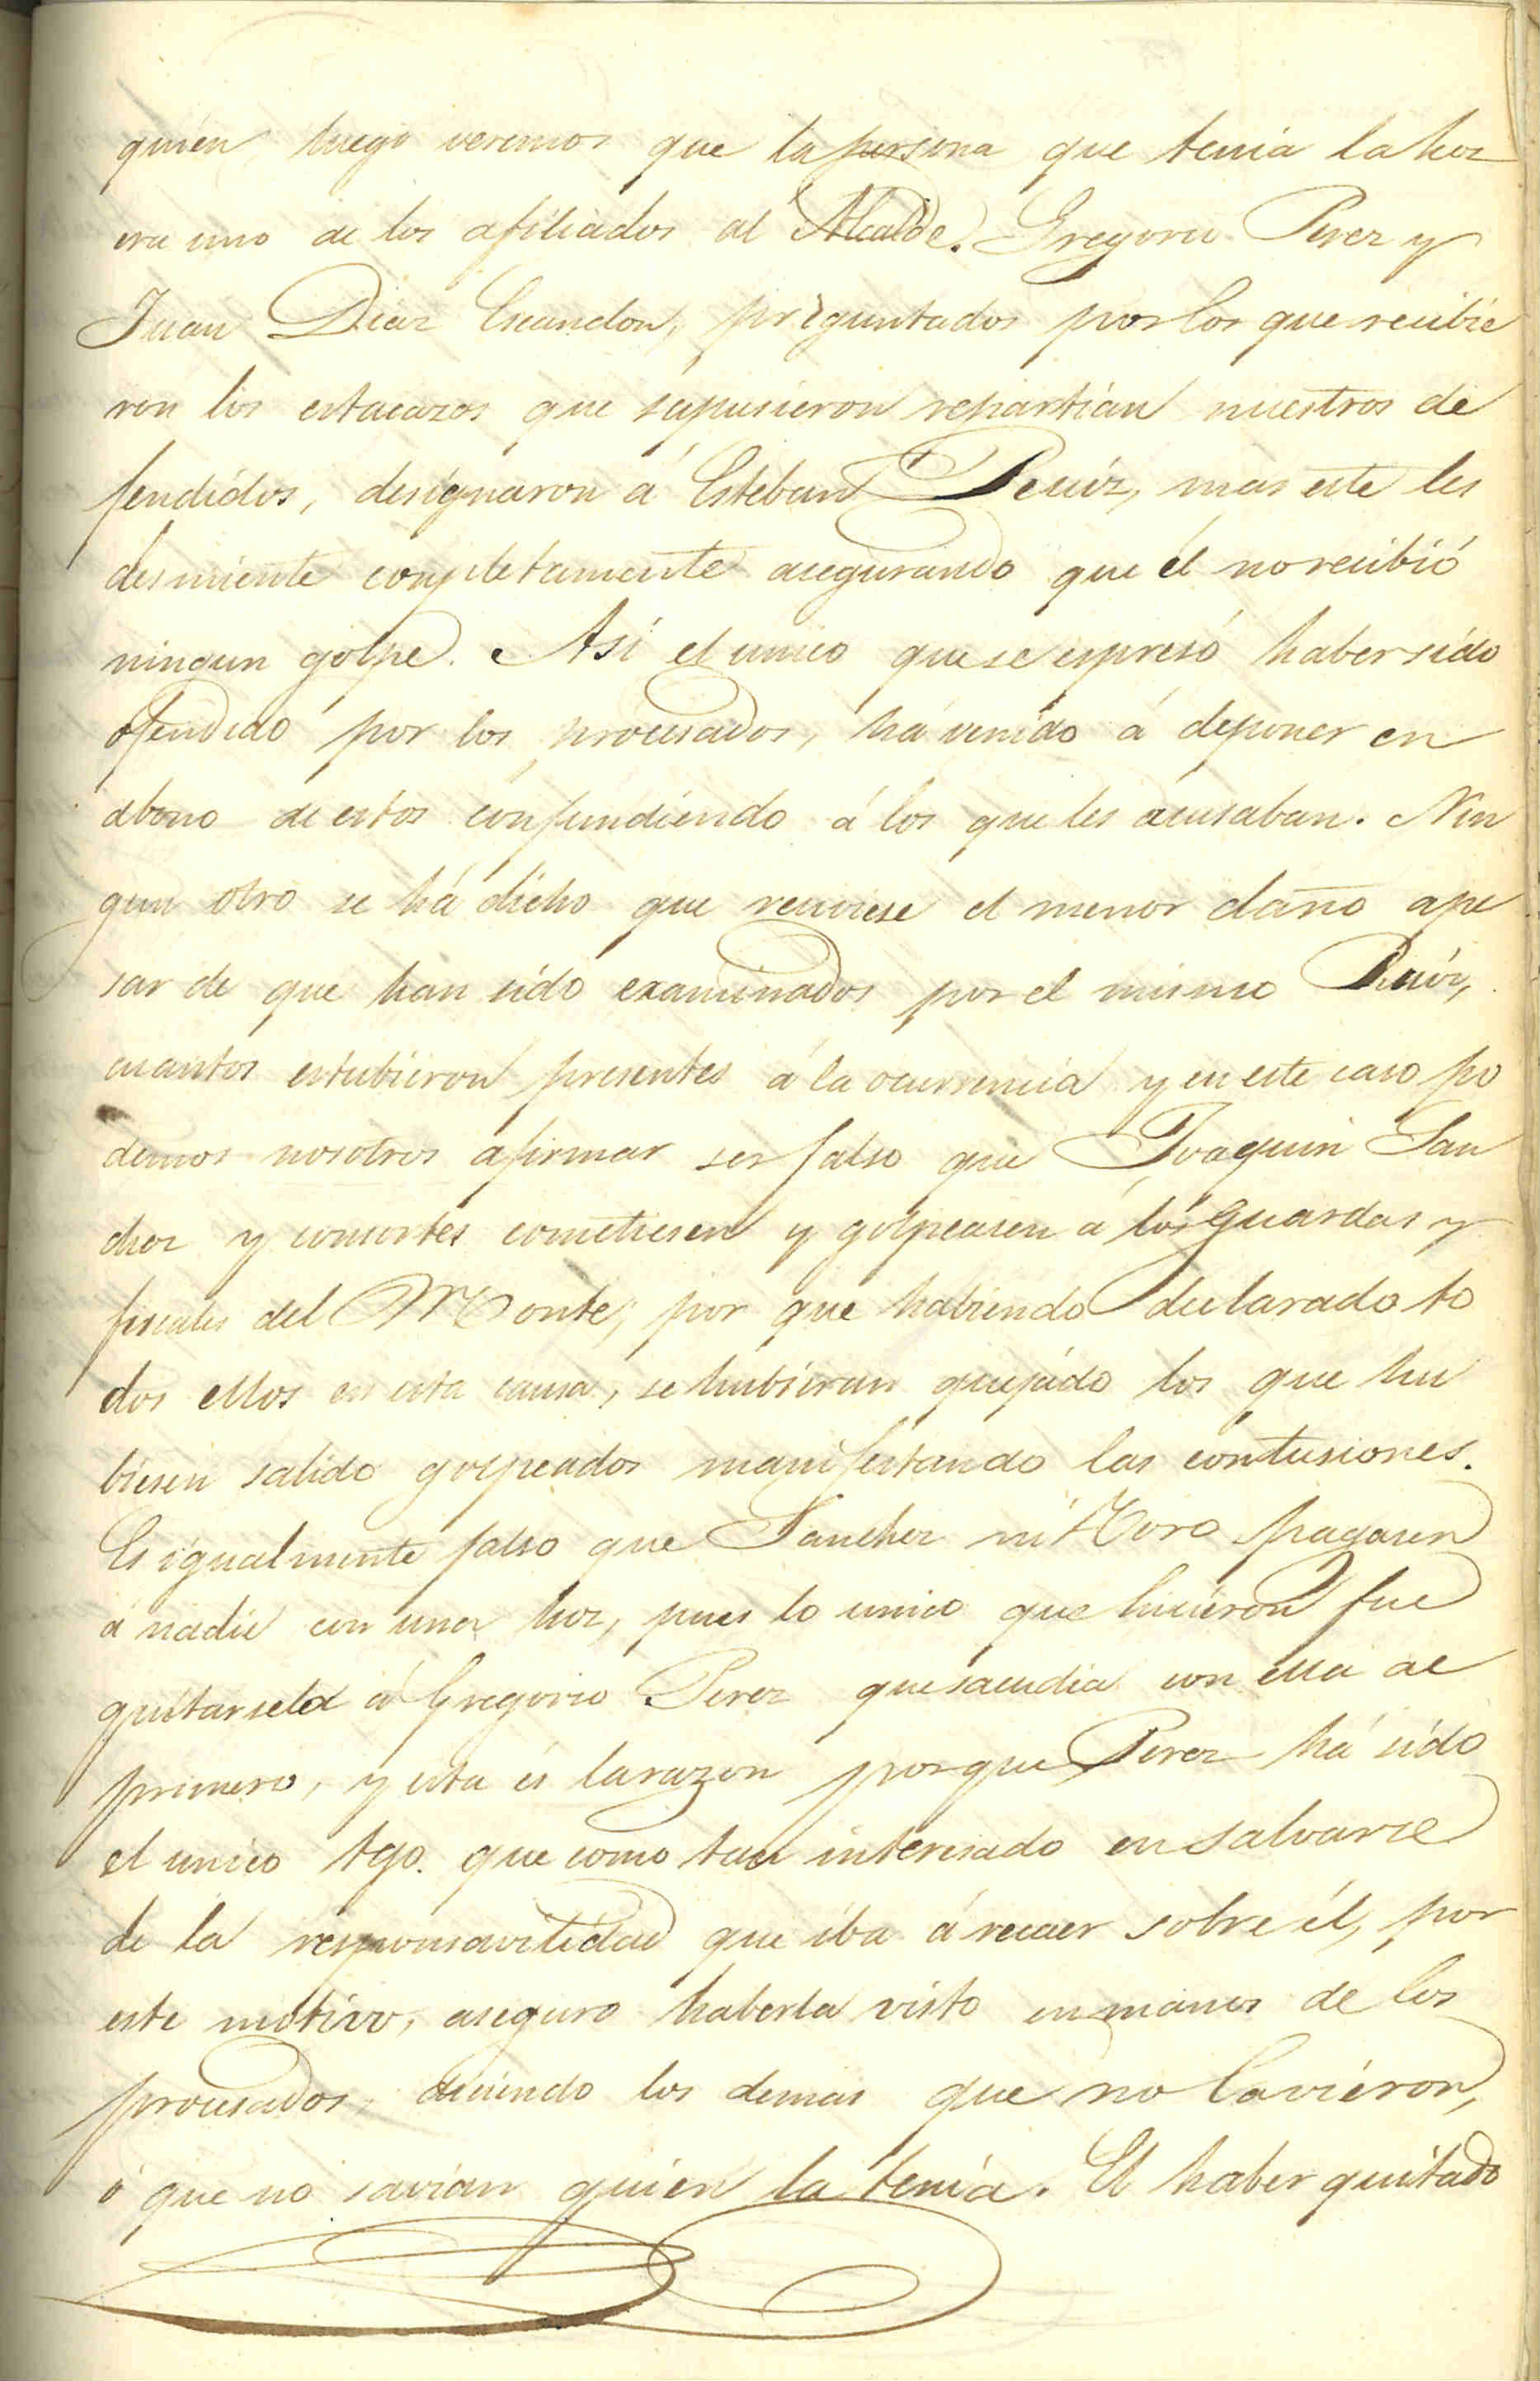 quien luego veremos que la persona que tenia la hoz
era uno de los afiliados al Alcalde. Gregorio Perez y
Juan Diaz Escandon, preguntados por los que recibie
ron los estacazos que supusieron repartian nuestros de
fendidos, designaron á Esteban Ruiz, mas este les
desmiente completamente asegurando que él no recibió
ningun golpe. Asi el unico que se espresó haber sido
ofendido por los procesados, há venido á deponer en
abono de estos confundiendo á los que les acusaban. Nin
gun otro se há dicho que reciviese el menor daño ape
sar de que han sido examinados por el mismo Ruiz,
cuantos estubieron presentes á la ocurrencia y en este caso po
demos nosotros afirmar ser falso que Joaquin San
chez y consortes cometiesen y golpeasen á los guardas y
fiscales del Monte, por que habiendo declarado to
dos ellos en esta causa, se hubieran quejado los que hu
biesen salido golpeados manifestando las contusiones.
Es igualmente falso que Sanchez ni Toro pagasen
á nadie con una hoz, pues lo unico que hicieron fue
quitarsela á Gregorio Perez que sacudia con ella al
primero, y esta és la razon porque Perez há sido
el unico tgo. que como tan interesado en salvarse
de la responsavilidad que iba á recaer sobre él, por
este motivo, aseguro haberla visto en manos de los
procesados, diciendo los demas que no la vieron,
ó que no savian quien la tenia. El haber quitado